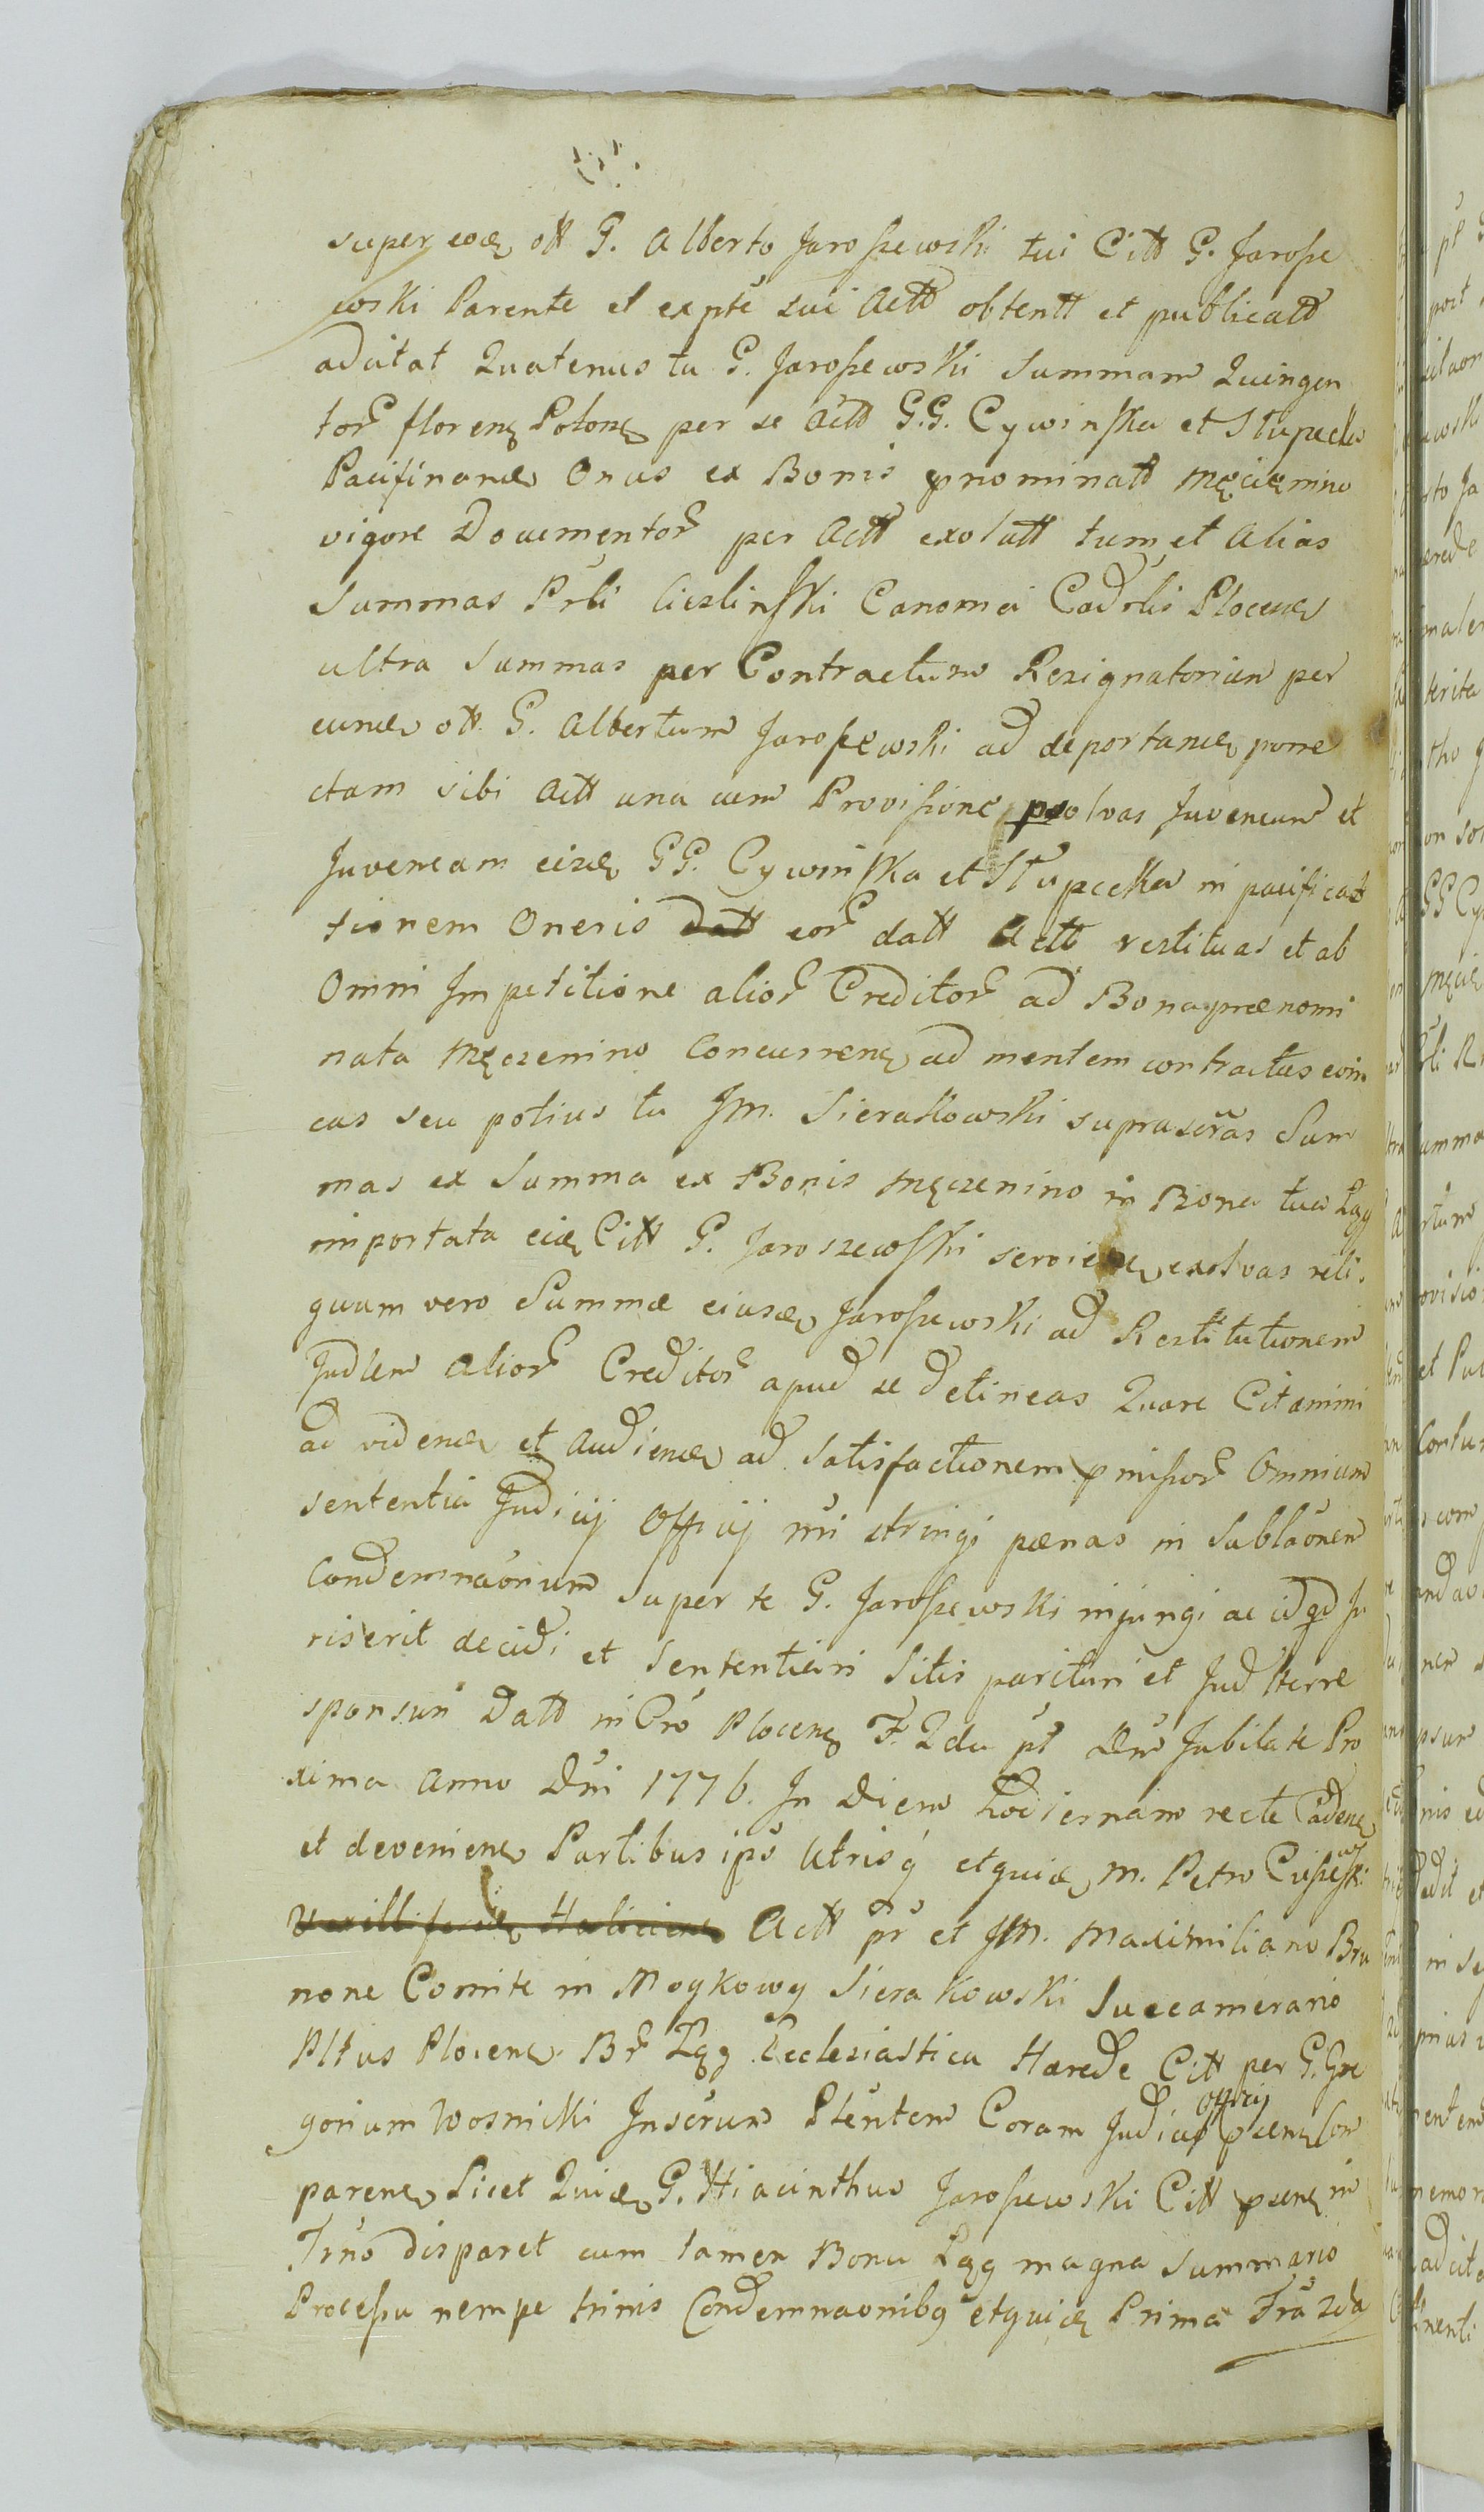 super eoq ott G. Alberto Jaroszewski tui Citt G. Jarosze
wski Parente et expte sui Actt obtentt et publicatt
adcitat Quatenus tu G. Jaroszewski Summam Quingen
tor florenq Polonq per se Actt G.G. Cywinska et Słupecka
Onus ex Bonis pnominatt Męcienino
vigore Documentor per Actt exolutt tum et Alias
Summas Prbi Cieslinski Canonici Cadrlis Plocenq
ultra Summas per Contractum Resignatorium per
eunq ott G. Albertum Jaroszewski ad deportanq porre
ctam sibi Actt una cum Provisione psolvas Juvencum et
Juvencam eisq GG. Cywinska et Słupecka in pacifica
tionem Oneris eor datt Actt restituas et ab
Omni Impetitione alior Creditor ad Bona prænomi
nata Męczenino Concurrenq ad mentem contractus evin
cas seu potius tu JM. Sierakowski suprascras Sum
mas ex Summa ex Bonis Męczenino in Bona tua Łęg
importata eiq Citt G. Jaroszewski servienq exolvas reli
quum vero Summæ eiusq Jaroszewski ad Restitutionem
Judlem alior Creditor apud se detineas Quare Citamini
ad videnq et Audienq ad Satisfactionem pmissor Omnium
sententia Judicij Officij nri stringi pœnas in Sublaonem
Condemnaonum super te G. Jaroszewski injungi ac id qd Ju
ris erit decidi et Sententiari Sitis parituri et Jud terre
sponsuri Datt in Cro Plocenq F. 2da pt Dnm Jubilate Pro
xima Anno Dni 1776. In Diem hodiernam recte Cadenq
et devenienq Partibus ips Utrisq etquiq M. Petro
Actt pr et JM. Maximiliano Bru
none Comite in Moykowy Sierakowski Succamerario
Pltus Plocenq Br Łęg Ecclesiastica Hærede Citt per G. Gre
gorium Wosnicki Inscrum Plentem Coram Judicio Officij psenq Com
parenq Licet Quiq G. Hiacinthus Jaroszewski Citt psenq in
Trno disparet cum tamen Bonu Łęg magna Summario
Processu nempe trinis Condemnaonibq etquiq Prima Fra 2da